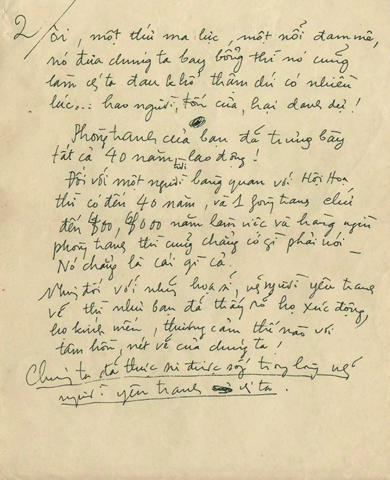 2/ ơi, một thứ ma lực, một nỗi đam mê,
nó đưa chúng ta bay bổng thì nó cũng
làm ta đau khổ thậm chí có nhiều
lúc... hao người, tốn của, hại danh dự!
Phòng tranh của bạn đã trưng bày
tất cả 40 năm trời lao động!
Đối với một người bàng quan với Hội Họa
thì có đến 40 năm, và 1 phòng tranh chứ
đến 400, 4000 năm làm việc và hàng ngàn
phòng tranh thì cũng chẳng có gì phải nói
Nó chẳng là cái gì cả.
Nhưng đối với những họa sĩ, những người yêu tranh
vẽ thì như bạn đã thấy rõ họ xúc động,
họ kính mến, thương cảm thế nào với
tâm hồn, nét vẽ của chúng ta!
Chúng ta đã thực sự được sống trong lòng những
người yêu tranh ta.